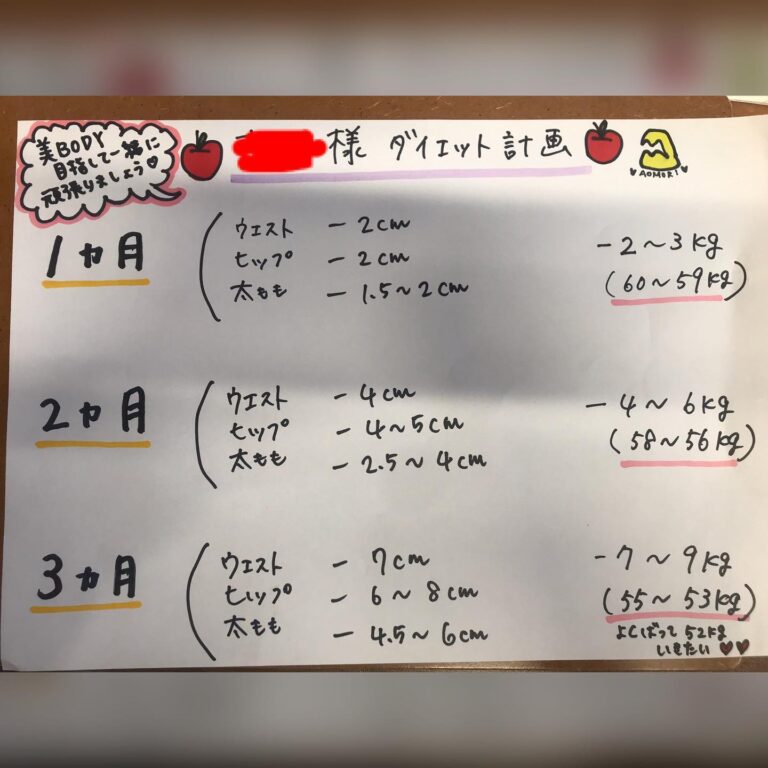 美BODY
目指して一緒に
頑張りましょう♡
様 ダイエット計画
♥AOMORI♥
1ヵ月
ウエスト -2cm
ヒップ -2cm
太もも -1.5~2cm
-2~3kg
(60~59kg)
2ヵ月
ウエスト -4cm
ヒップ -4~5cm
太もも -2.5~4cm
-4~6kg
(58~56kg)
3ヵ月
ウエスト -7cm
ヒップ -6~8cm
太もも -4.5~6cm
-7~9kg
(55~53kg)
よくばって52kg
いきたい♥♥